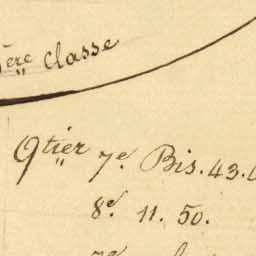 ère classe
Qtier 7e. Bis. 43.
8e. 11. 50.